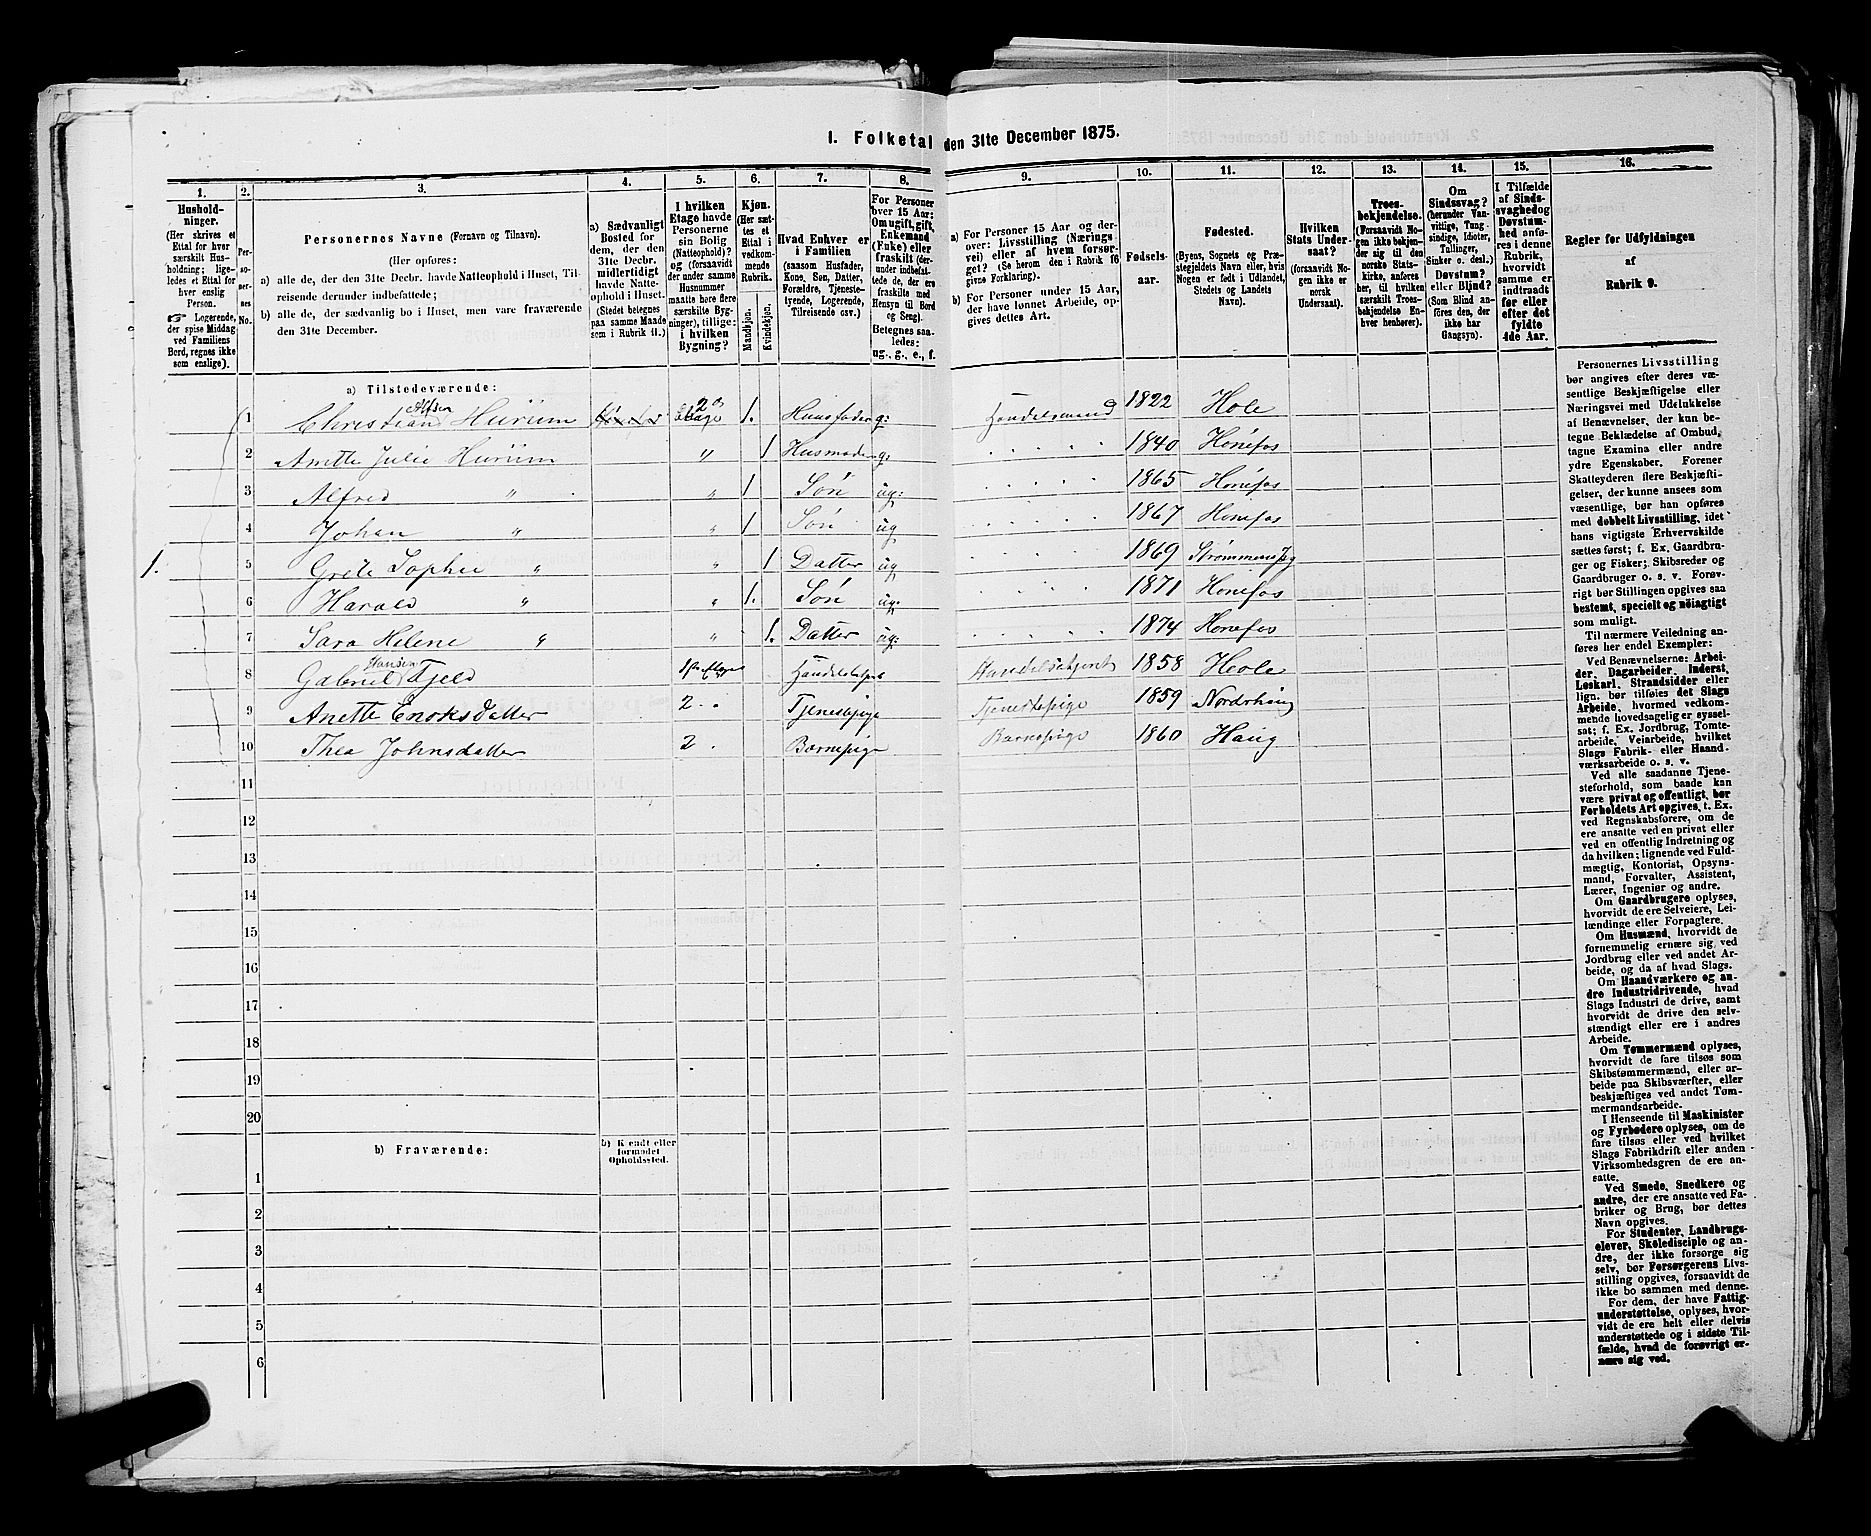 I. Folketal den 31te December 1875.
1. 2. 3. 4. 5. 6. 7. 8. 9. 10. 11. 12. 13. 14. 15. 16.
Husholdninger.
(Her skrives et
Ettal for hver
særskilt Husholdning;
ligeledes et Ettal for
hver enslig
Person.
☞ Logerende,
der spise Middag
ved Familiens
Bord, regnes ikke
som enslige).
Personernes
No.
Personernes Navne (Fornavn og Tilnavn).
(Her opføres:
a) alle de, der den 31te Decbr. havde Natteophold i Huset, Tilreisende derunder indbefattede;
b) alle de, der sædvanlig bo i Huset, men vare fraværende
den 31te December.
a) Sædvanligt
Bosted for
dem, der den
31te Decbr.
midlertidigt
havde Natteophold i Huset.
(Stedet betegnes
paa samme Maade
som i Rubrik 11.)
I hvilken
Etage havde
Personerne
sin Bolig
(Natteophold)?
og (forsaavidt
der under samme
Husnummer
maatte høre flere
særskilte Bygninger), tillige:
i hvilken
Bygning?
Kjøn.
(Her sættes et
Ettal i
vedkommende
Rubrik.)
Mandkjøn.
Kvindekjøn.
Hvad Enhver er
i Familien
(saasom Husfader,
Kone, Søn, Datter,
Forældre, Tjenestetyende, Logerende,
Tilreisende osv.)
For Personer
over 15 Aar:
Om ugift, gift,
Enkemand
(Enke) eller
fraskilt (derunder indbefattede de, der ere
fraskilte med
Hensyn til Bord
og Seng).
Betegnes saaledes:
ug., g., e., f.
a) For Personer 15 Aar og derover: Livsstilling (Næringsvei) eller af hvem forsørget? (Se herom den i Rubrik 16
givne Forklaring).
b) For Personer under 15 Aar,
der have lønnet Arbeide, opgives dettes Art.
Fødselsaar.
Fødested.
(Byens, Sognets og Præstegjeldets Navn eller, hvis
Nogen er født i Udlandet,
Stedets og Landets
Navn).
Hvilken
Stats Undersaat?
(forsaavidt Nogen ikke er
norsk
Undersaat).
Troesbekjendelse.
(Forsaavidt Nogen ikke bekjender sig til den
norske Statskirke, anføres
her, til hvilken
særskilt Troesbekjendelse Enhver henhører).
Om
Sindssvag?
(herunder Vanvittige, Tungsindige, Idioter,
Tullinger,
Sinker o. desl.)
Døvstum?
eller Blind?
(Som Blind anføres den, der
ikke har
Gangsyn).
I Tilfælde
af Sindssvaghed og
Døvstumhed anføres i denne
Rubrik,
hvorvidt
samme er
indtraadt
før eller
efter det
fyldte
4de Aar.
Regler for Udfyldningen
af
Rubrik 9.
a) Tilstedeværende:
1 Christian Alfsen Hurum 2 Etage 1. Huusfader g: Handelsmand 1822 Hole
2 Anette Julie Hurum " 1 Husmoder g: 1840 Honefos
3 Alfred " " 1 Søn ug: 1865 Honefos
4 Johan " " 1 Søn ug 1867 Honefos
1. 5 Grete Sophie " " 1 Datter ug 1869 Strømmen
6 Harald " " 1. Søn ug: 1871 Honefos
7 Sara Helene " " 1. Datter ug: 1874 Honefos
8 Gabriel Hansen Fjeld 1 Etage Handelsbetjent 1858 Hole
9 Anette Enoksdatter 2 " Tjenestpige Tjenestepige 1859 Norderhaug
10 Thea Johnsdatter 2 " Barnepige Barnepige 1860 Haug
11
12
13
14
15
16
17
18
19
20
b) Fraværende:
b) Kjendt eller
formodet
Opholdssted.
1
2
3
4
5
6
Personernes Livsstilling
bør angives efter deres væsentlige Beskjæftigelse eller
Næringsvei med Udelukkelse
af Benævnelser, der kun betegne Beklædelse af Ombud,
tagne Examina eller andre
ydre Egenskaber. Forener
Skatteyderen flere Beskjæftigelser, der kunne ansees som
væsentlige, bør han opføres
med dobbelt Livsstilling, idet
hans vigtigste Erhvervskilde
sættes først; f. Ex. Gaardbruger og Fisker; Skibsreder og
Gaardbruger o. s. v. Forøvrigt bør Stillingen opgives saa
bestemt, specielt og nøiagtigt
som muligt.
Til nærmere Veiledning anføres her endel Exempler:
Ved Benævnelserne: Arbeider, Dagarbeider, Inderst,
Løskarl, Strandsidder eller
lign. bør tilføies det Slags
Arbeide, hvormed vedkommende hovedsagelig er sysselsat; f. Ex. Jordbrug, Tomtearbeide, Veiarbeide, hvilket
Slags Fabrik- eller Haandværksarbeide o. s. v.
Ved alle saadanne Tjenesteforhold, som baade kan
være privat og offentligt, bør
Forholdets Art opgives, t. Ex.
ved Regnskabsførere, om de
ere ansatte ved en privat eller
ved en offentlig Indretning og
da hvilken; lignende ved Fuldmægtig, Kontorist, Opsynsmand, Forvalter, Assistent,
Lærer, Ingeniør og andre.
Om Gaardbrugere oplyses,
hvorvidt de ere Selveiere, Leilændinge eller Forpagtere.
Om Husmænd, hvorvidt de
fornemmelig ernære sig ved
Jordbrug eller ved andet Arbeide, og da af hvad Slags.
Om Haandværkere og andre Industridrivende, hvad
Slags Industri de drive, samt
hvorvidt de drive den selvstændigt eller ere i andres
Arbeide.
Om Tømmermænd oplyses,
hvorvidt de fare tilsøs som
Skibstømmermænd, eller arbeide paa Skibsværfter, eller
beskjæftiges ved andet Tømmermandsarbeide.
I Henseende til Maskinister
og Fyrbødere oplyses, om de
fare tilsøs eller ved hvilket
Slags Fabrikdrift eller anden
Virksomhedsgren de ere ansatte.
Ved Smede, Snedkere og
andre, der ere ansatte ved Fabriker og Brug, bør dettes
Navn opgives.
For Studenter, Landbrugselever, Skoledisciple og andre, der ikke forsørge sig
selv, bør Forsørgerens Livsstilling opgives, forsaavidt de
ikke bo sammen med denne.
For dem, der have Fattigunderstøttelse, oplyses, hvorvidt de ere helt eller delvis
understøttede og i sidste Tilfælde, hvad de forøvrigt ernære sig ved.